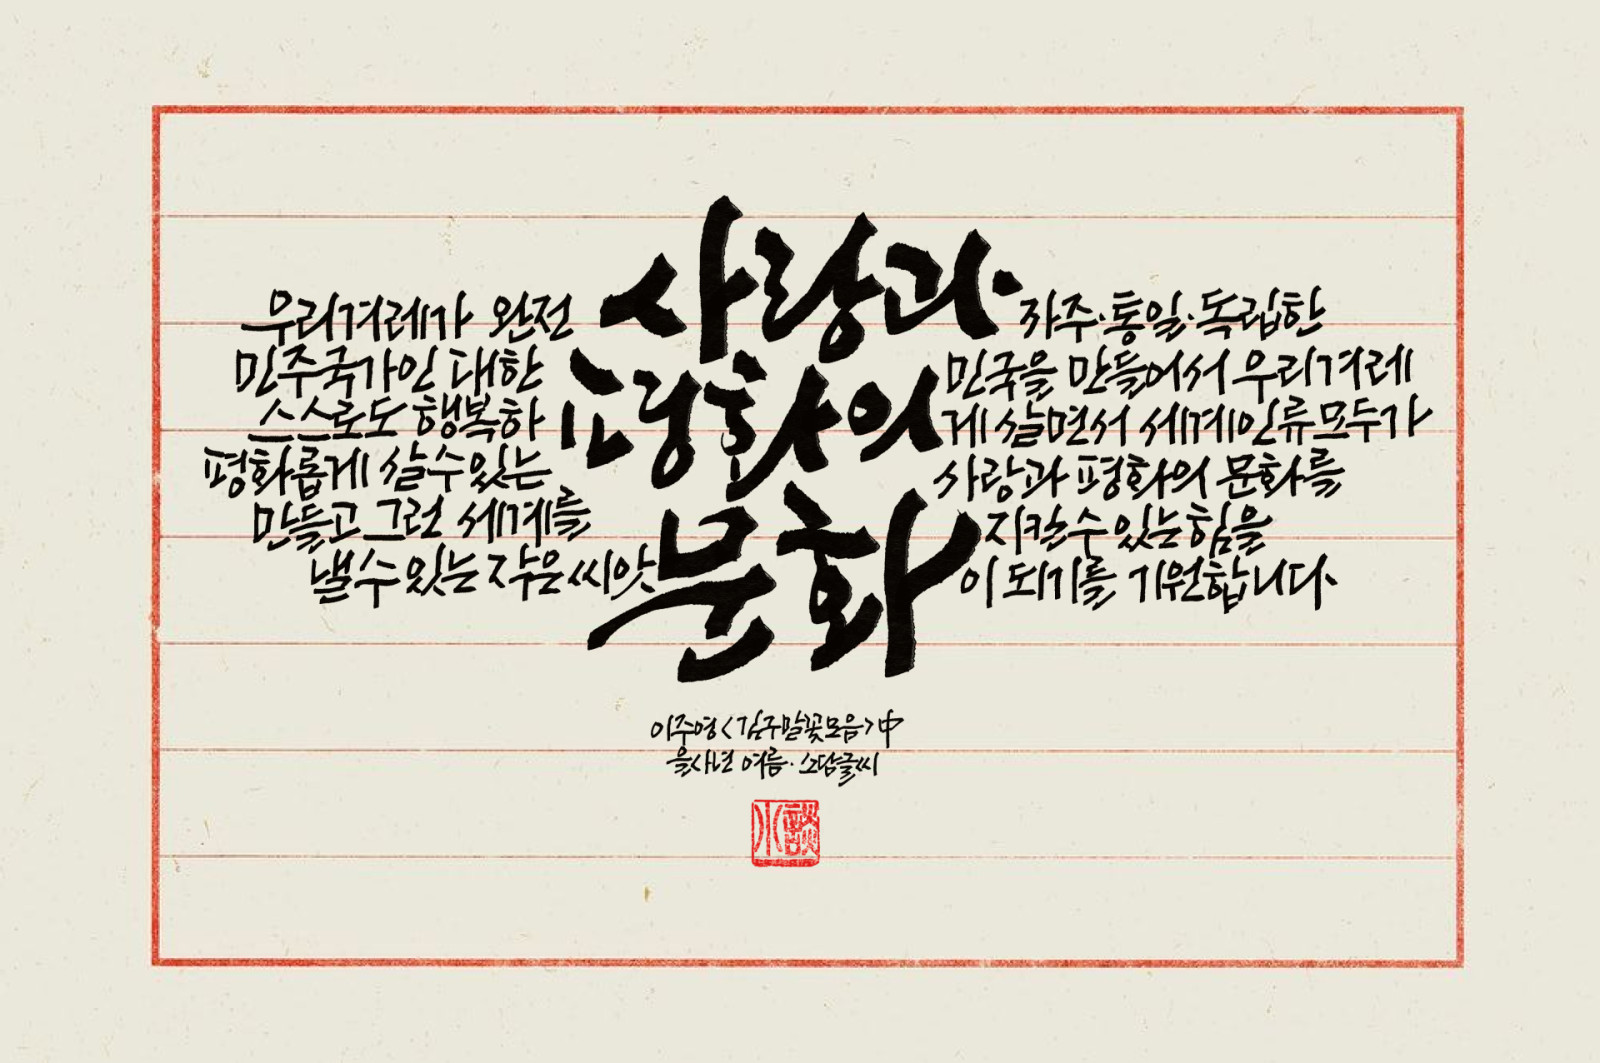 사랑과
평화의
문화
우리겨레가 완전 자주·통일·독립한
민주국가인 대한 민국을 만들어서 우리겨레
스스로도 행복하 게 살면서 세계인류 모두가
평화롭게 살 수 있는 사랑과 평화의 문화를
만들고 그런 세계를 지킬 수 있는 힘을
낼 수 있는 작은 씨앗 이 되기를 기원합니다.
이주영<김구말꽃모음>中
을사년 여름. 소담글씨